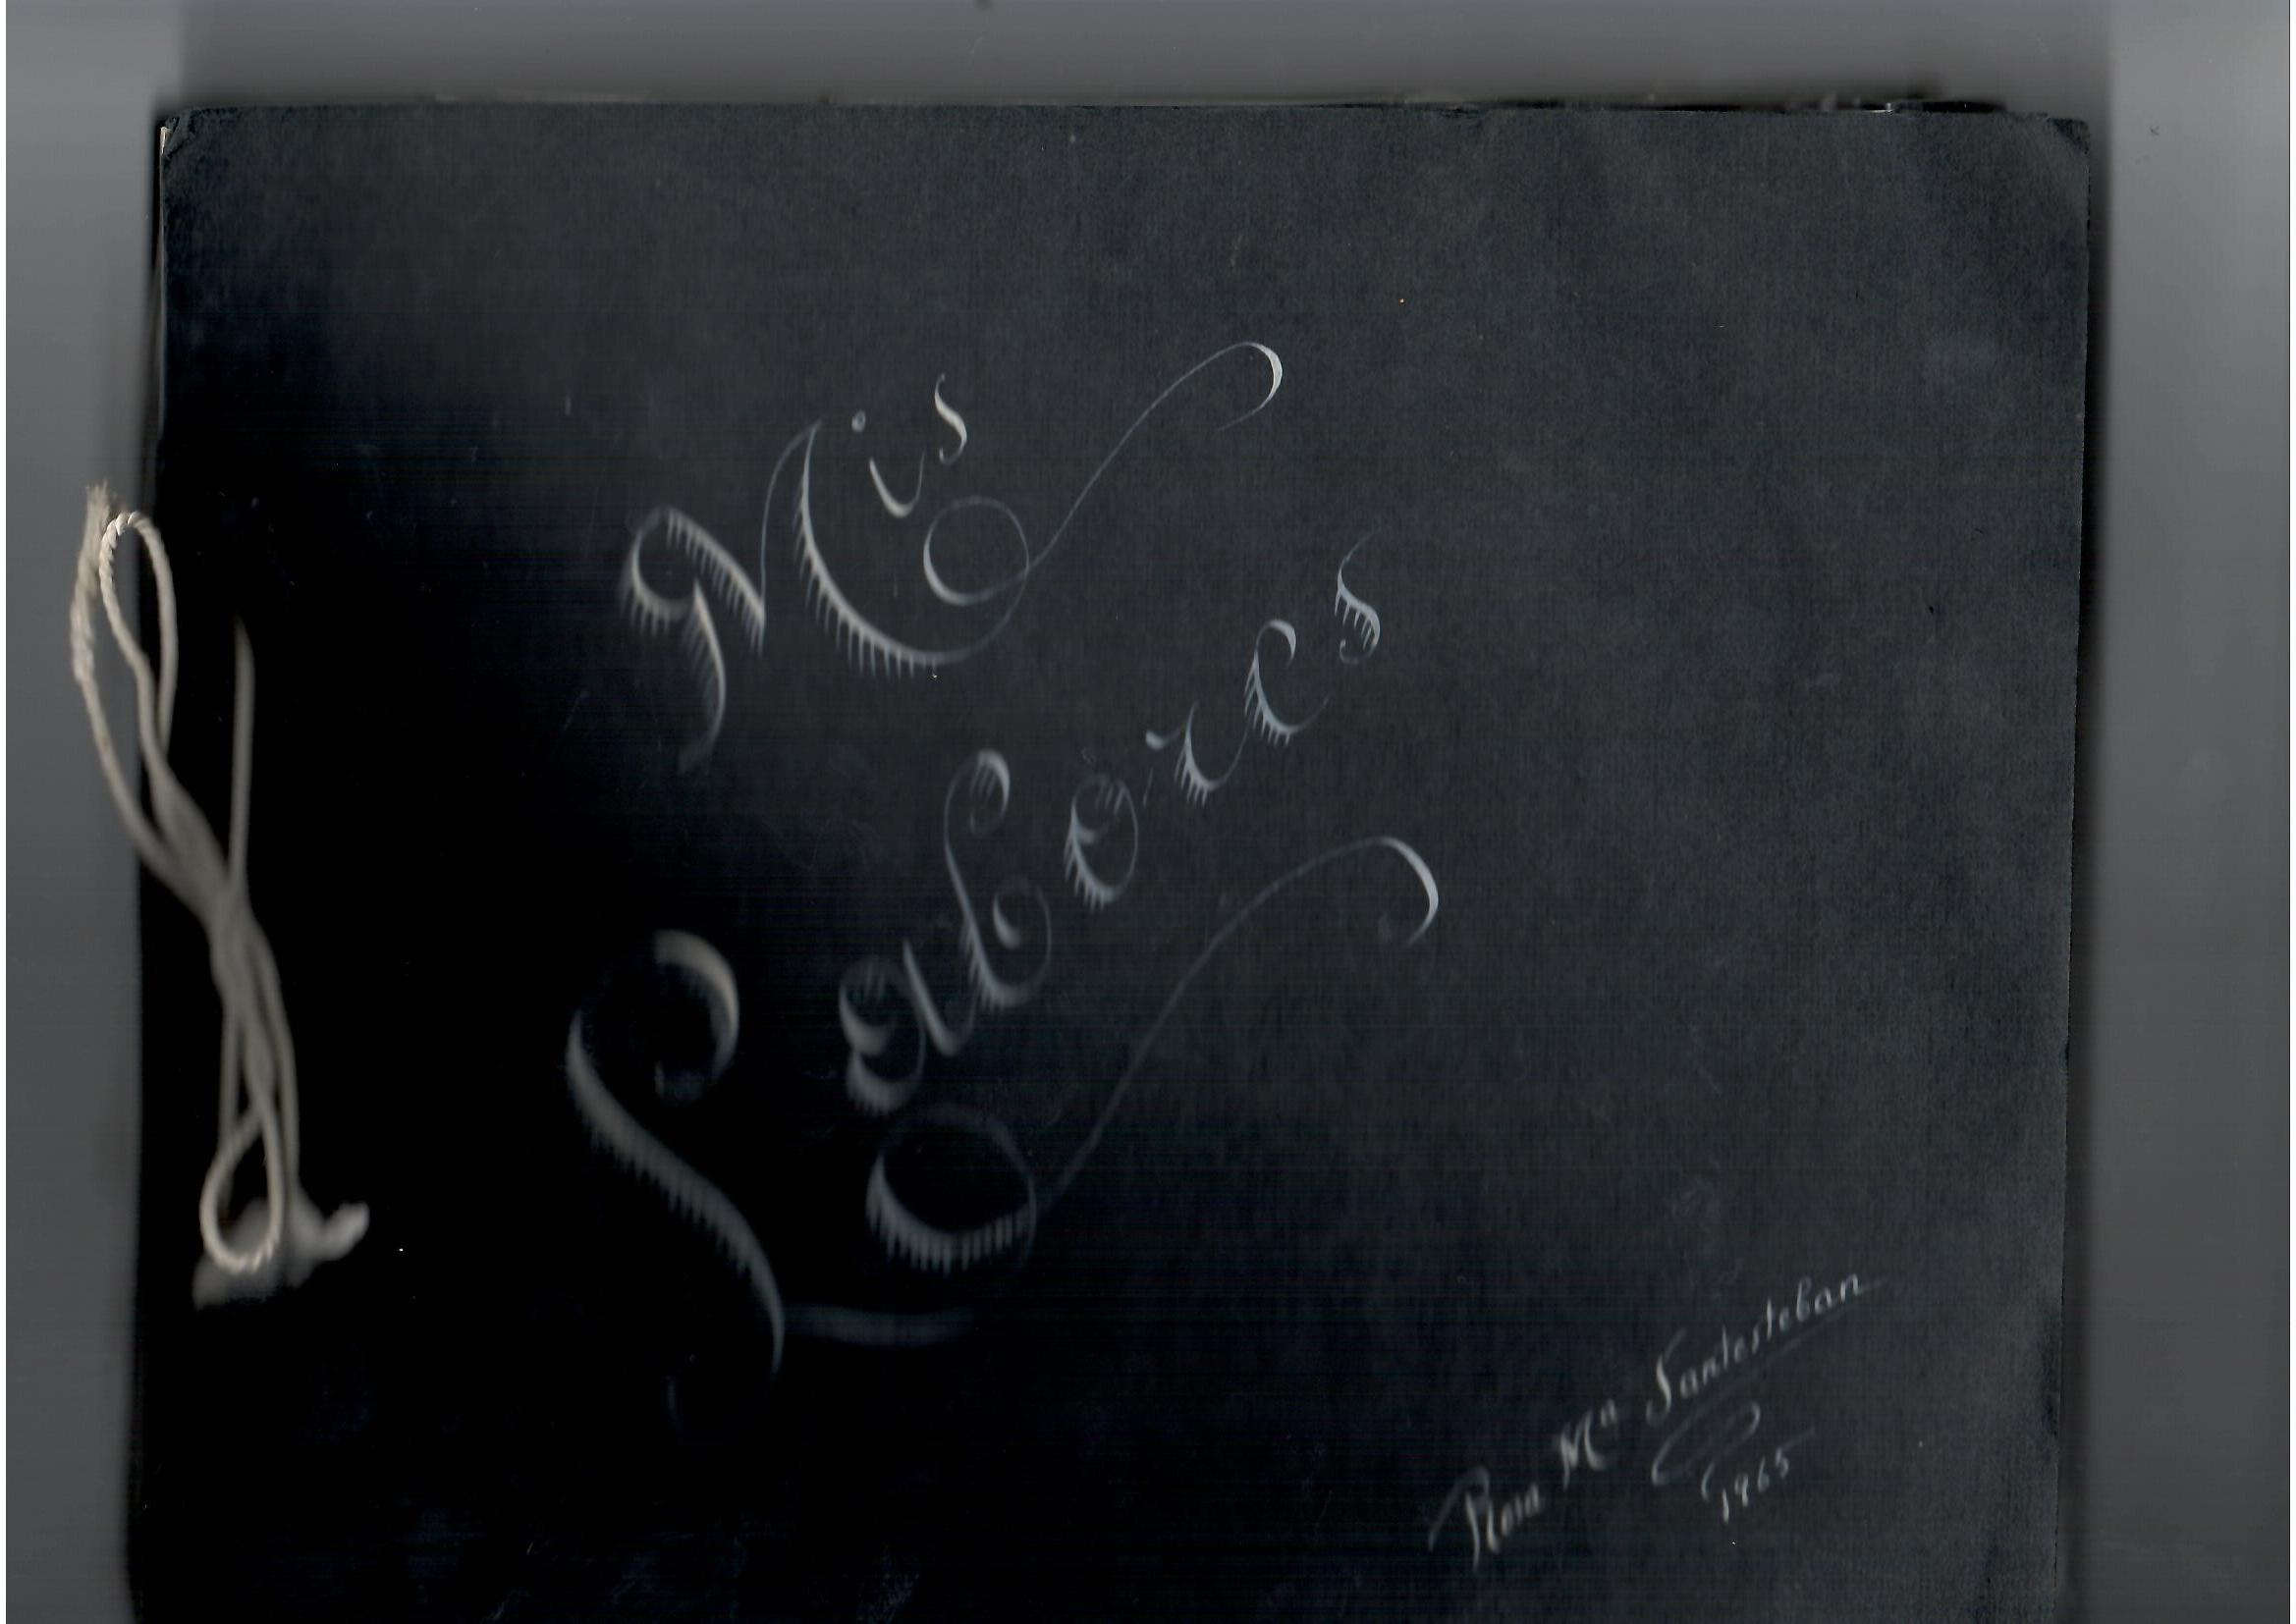 Mis
Labores
Rosa Mª Santesteban
1965